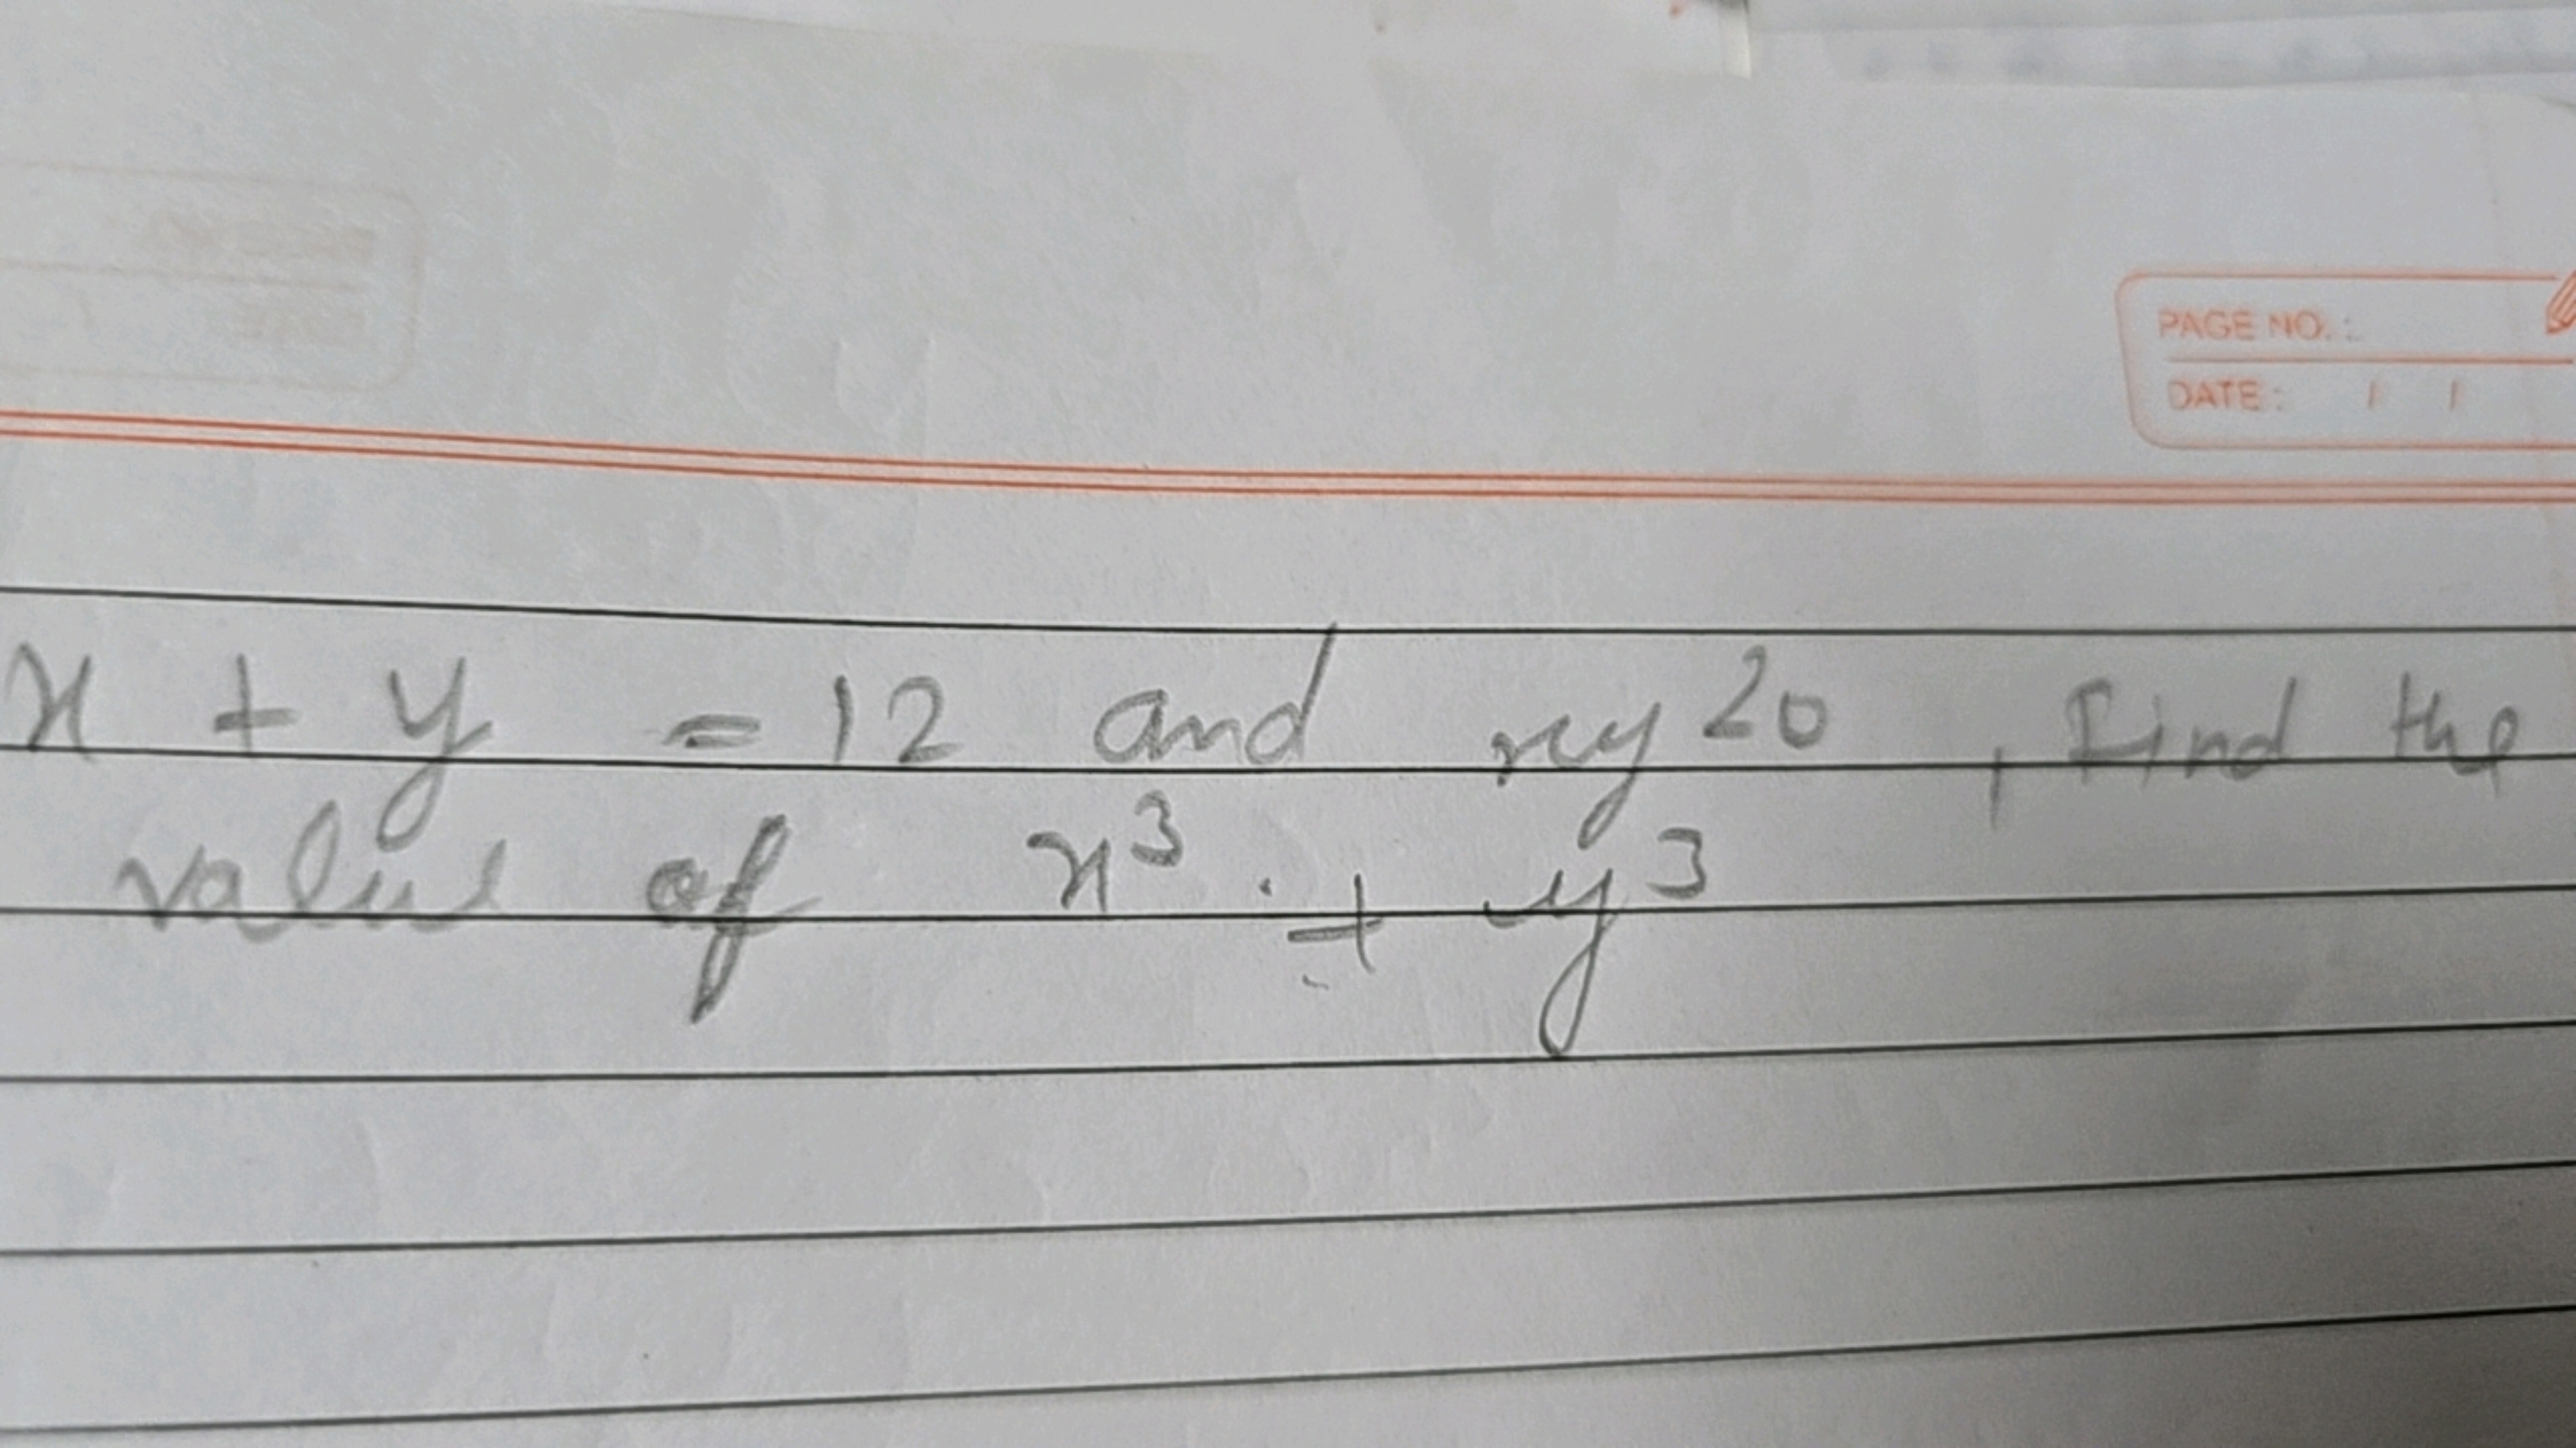 PAGE NO. :
DATE : / /
x + y = 12 and xy 20 , Find the
value of x³ + y³